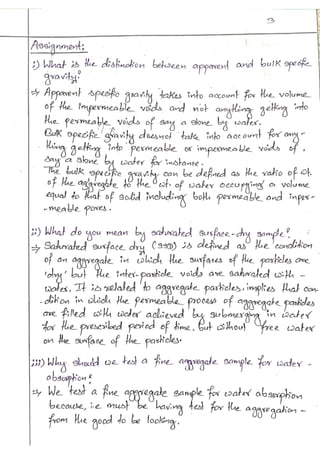 3
Assignment:
i) What is the distinction between apparent and bulk specific
gravity?
⇒ Apparent specific gravity takes into account for the volume
of the impermeable voids and not anything getting into
the permeable voids of say a stone by water.
Bulk specific gravity doesnot take into account for any-
thing getting into permeable or impermeable voids of,
say a stone by water for instance.
The bulk specific gravity can be defined as the ratio of wt.
of the aggregate to the wt. of water occupying a volume
equal to that of solid including both permeable and imper-
-meable pores.
ii) What do you mean by saturated surface-dry sample?
⇒ Saturated surface dry (SSD) is defined as the condition
of an aggregate in which the surfaces of the particles are
'dry' but the inter-particle voids are saturated with -
water. It is related to aggregate particles, implies that con-
-dition in which the permeable process of aggregate particles
are filled with water achieved by submerging in water
for the prescribed period of time, but without free water
on the surface of the particles.
iii) Why should we test a fine aggregate sample for water -
absorption?
⇒ We test a fine aggregate sample for water absorption
because, i.e must be having test for the aggregation -
from the good to be looking.